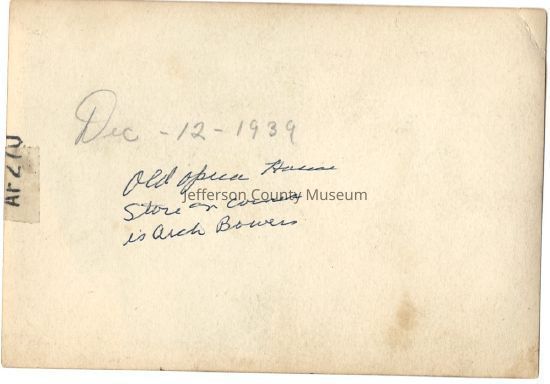 Dec - 12 - 1939
Old opera House
Jefferson County Museum
Store on corner
is Arch Bowers